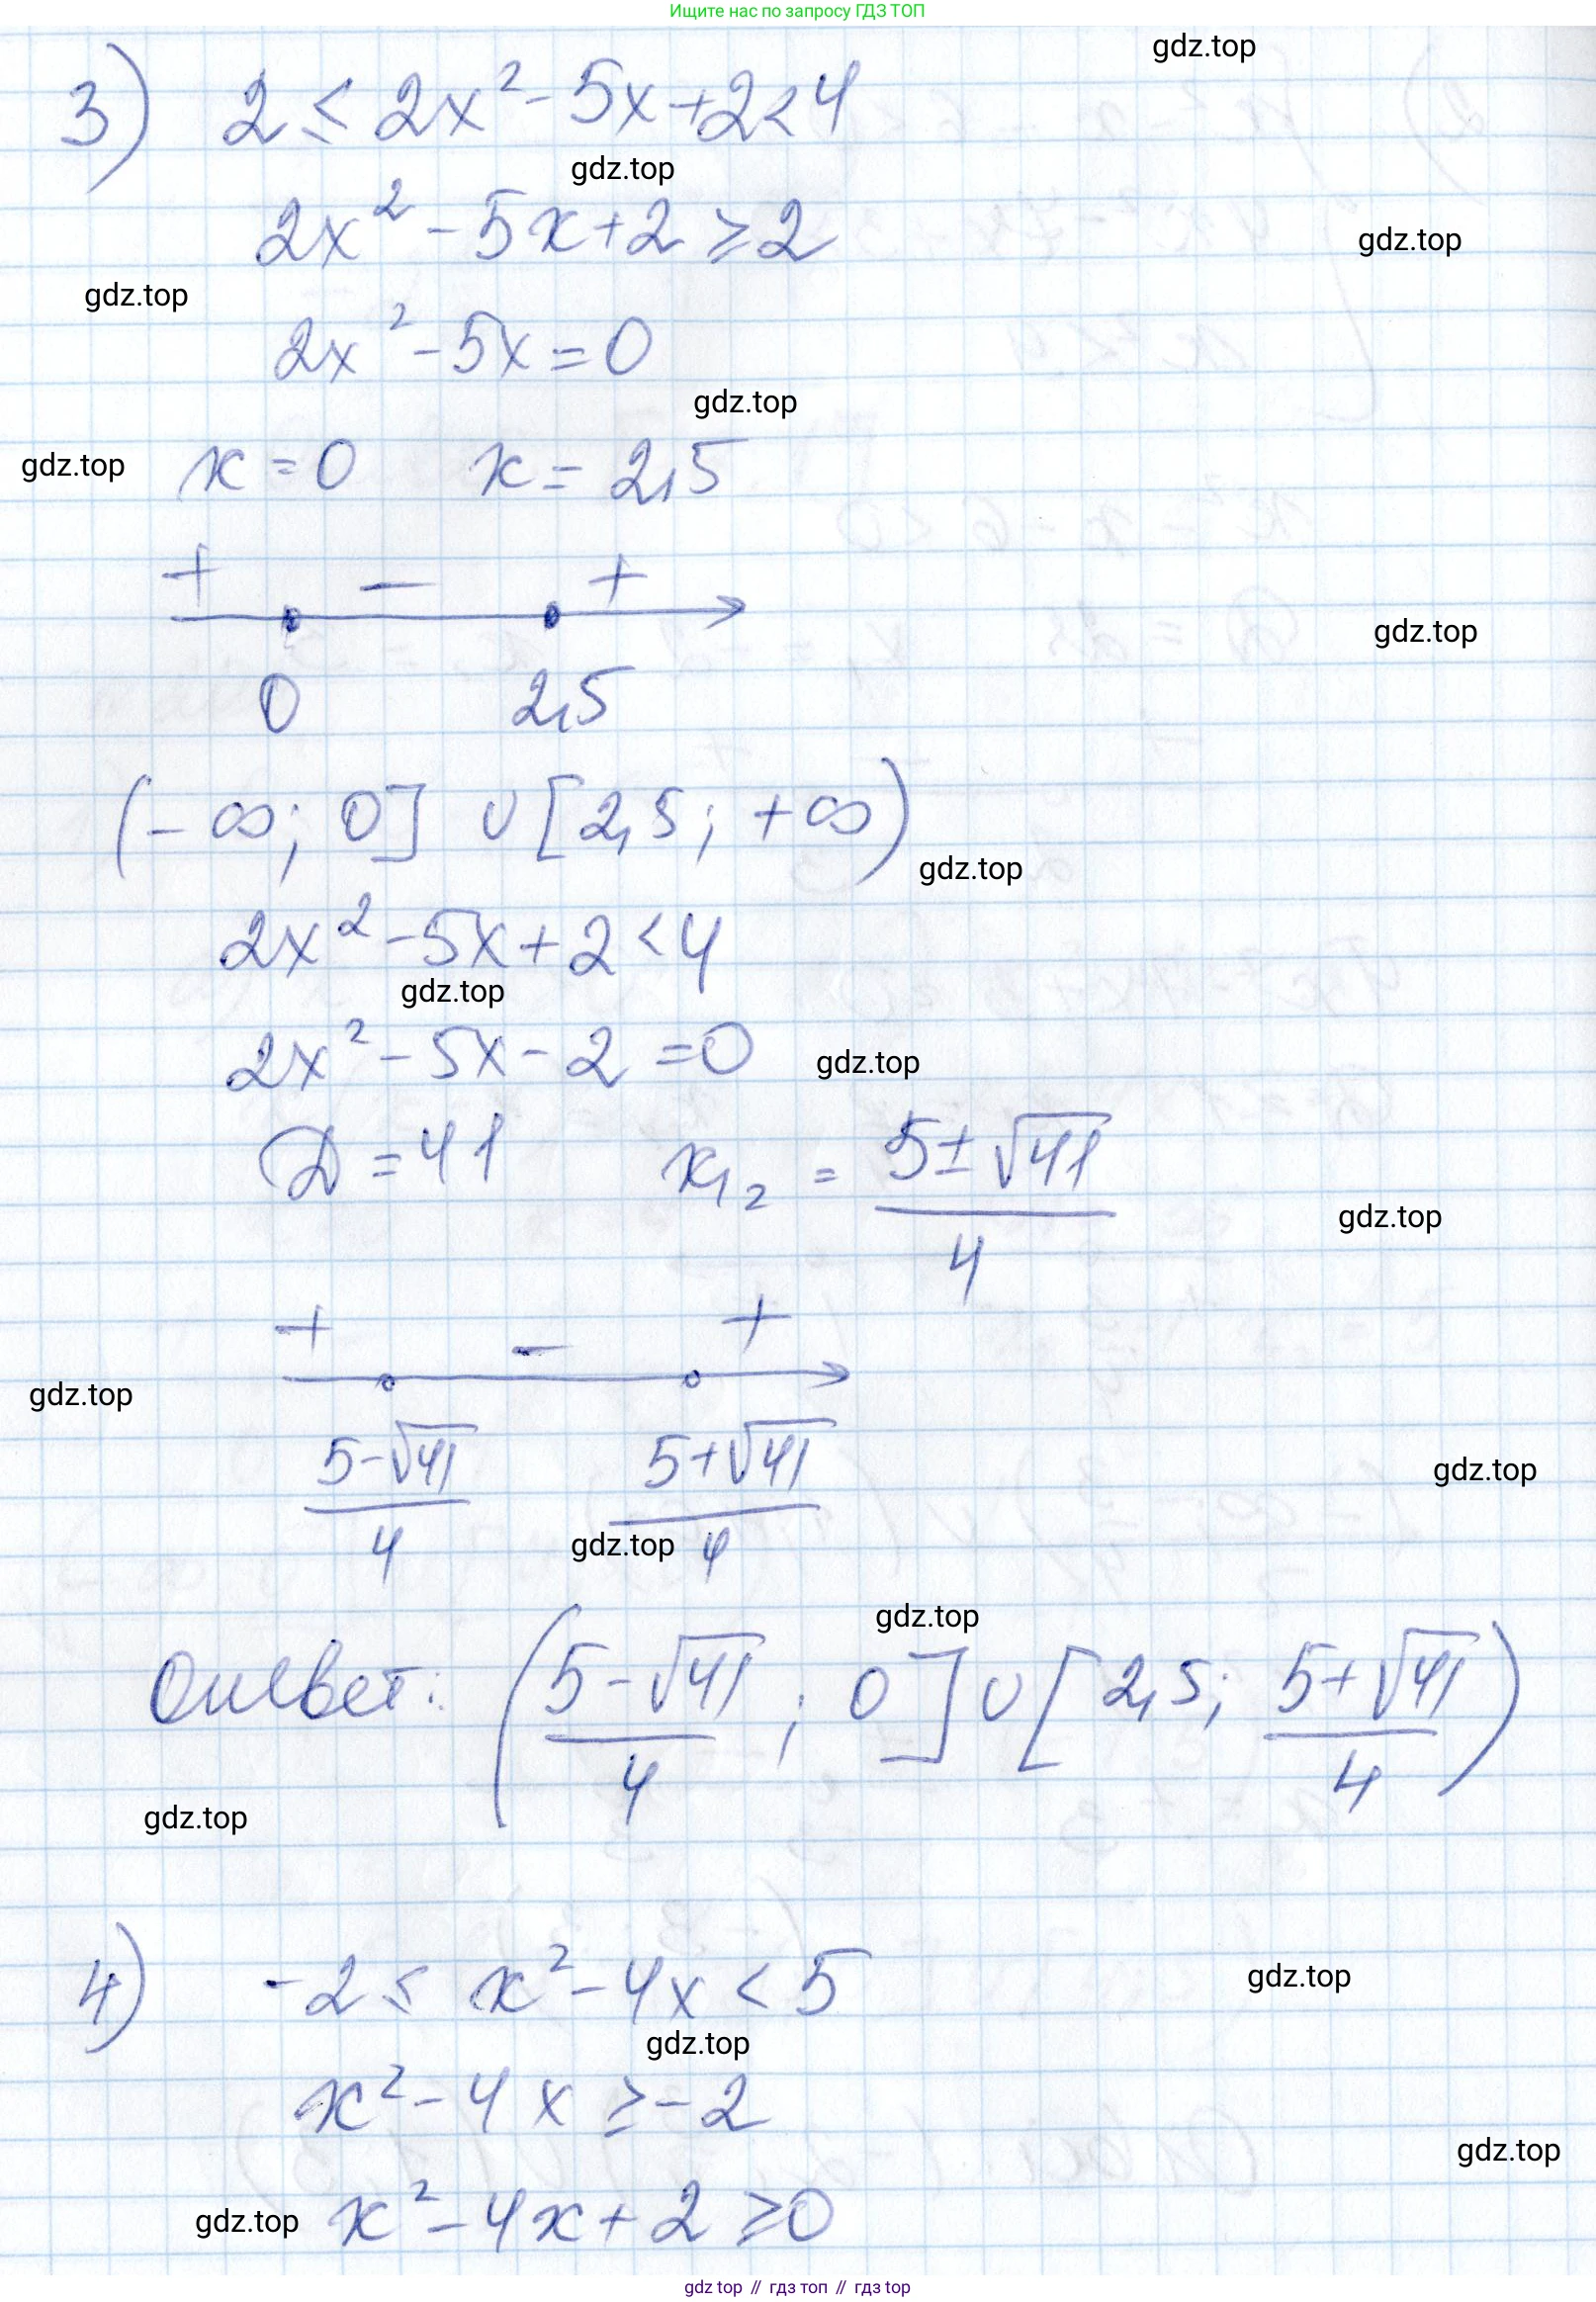 Ищите нас по запросу ГДЗ ТОП
gdz.top
3) 2 ≤ 2x² - 5x + 2 < 4
gdz.top
2x² - 5x + 2 ≥ 2
gdz.top
gdz.top
2x² - 5x = 0
gdz.top
gdz.top
x = 0 x = 2,5
+ - +
gdz.top
0 2,5
(-∞; 0] ∪ [2,5; +∞)
gdz.top
2x² - 5x + 2 < 4
gdz.top
2x² - 5x - 2 = 0
gdz.top
D = 41 x₁,₂ = (5 ± √41)/4
gdz.top
+ - +
gdz.top
(5-√41)/4 (5+√41)/4
gdz.top
gdz.top
gdz.top
Ответ: ((5-√41)/4; 0] ∪ [2,5; (5+√41)/4)
gdz.top
4) -2 ≤ x² - 4x < 5
gdz.top
gdz.top
x² - 4x ≥ -2
gdz.top
gdz.top
x² - 4x + 2 ≥ 0
gdz top // гдз топ // гдз top